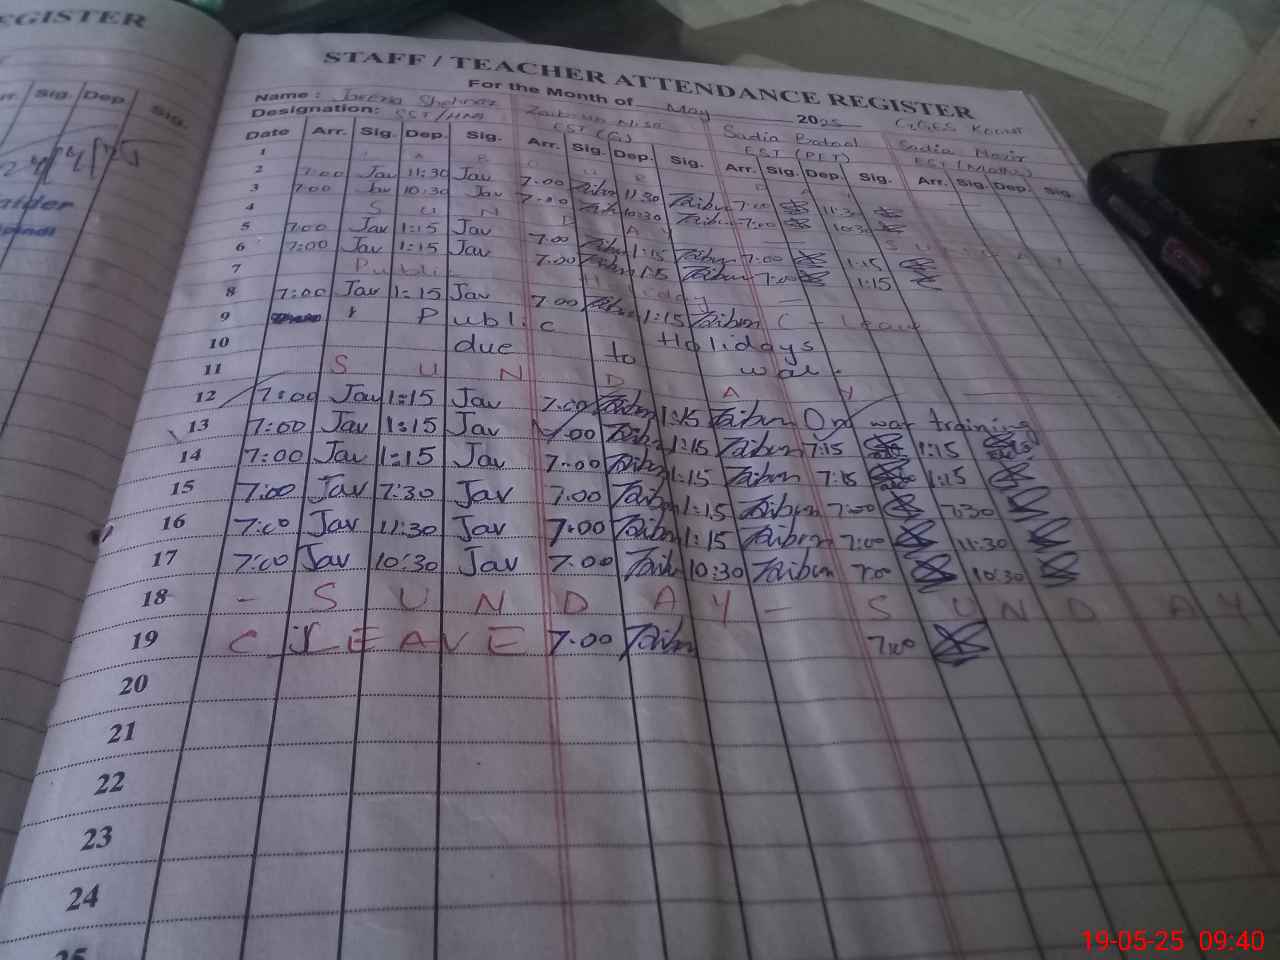 EGISTER
STAFF / TEACHER ATTENDANCE REGISTER
For the Month of May 2025
Name : Shehnaz Zaib un Nisa Sadia Batool Sadia Nazir
Designation: SST/ EST (G) EST (PET) EST (Maths)
Sig. Dep. Sig.
Date Arr. Sig. Dep. Sig. Arr. Sig. Dep. Sig. Arr. Sig. Dep. Sig. Arr. Sig. Dep. Sig.
1
2 7:00 Jav 11:30 Jav 7.00 Taibun 11:30 Taibun 7:00 11:30
3 7:00 Jav 10:30 Jav 7.00 10:30 Taibun 7:00 10:30
4 S U N D A Y S U N D A Y
5 7:00 Jav 1:15 Jav 7.00 Taibun 1:15 Taibun 7:00 1:15
6 7:00 Jav 1:15 Jav 7.00 Taibun 1:15 Taibun 7:00 1:15
7 Public Holiday
8 7:00 Jav 1:15 Jav 7.00 Taibun 1:15 Taibun C - Leave
9 Public Holidays
10 due to war.
11 S U N D A Y
12 7:00 Jav 1:15 Jav 7.00 Taibun 1:15 Taibun On war training
13 7:00 Jav 1:15 Jav 7.00 Taibun 1:15 Taibun 7:15 1:15
14 7:00 Jav 1:15 Jav 7.00 Taibun 1:15 Taibun 7:15 1:15
15 7:00 Jav 7:30 Jav 7.00 Taibun 1:15 Taibun 7:00 7:30
16 7:00 Jav 11:30 Jav 7.00 Taibun 1:15 Taibun 7:00 11:30
17 7:00 Jav 10:30 Jav 7.00 Taibun 10:30 Taibun 7:00 10:30
18 - S U N D A Y - S U N D A Y
19 C LEAVE 7.00 Taibun 7:00
20
21
22
23
24
25
19-05-25 09:40